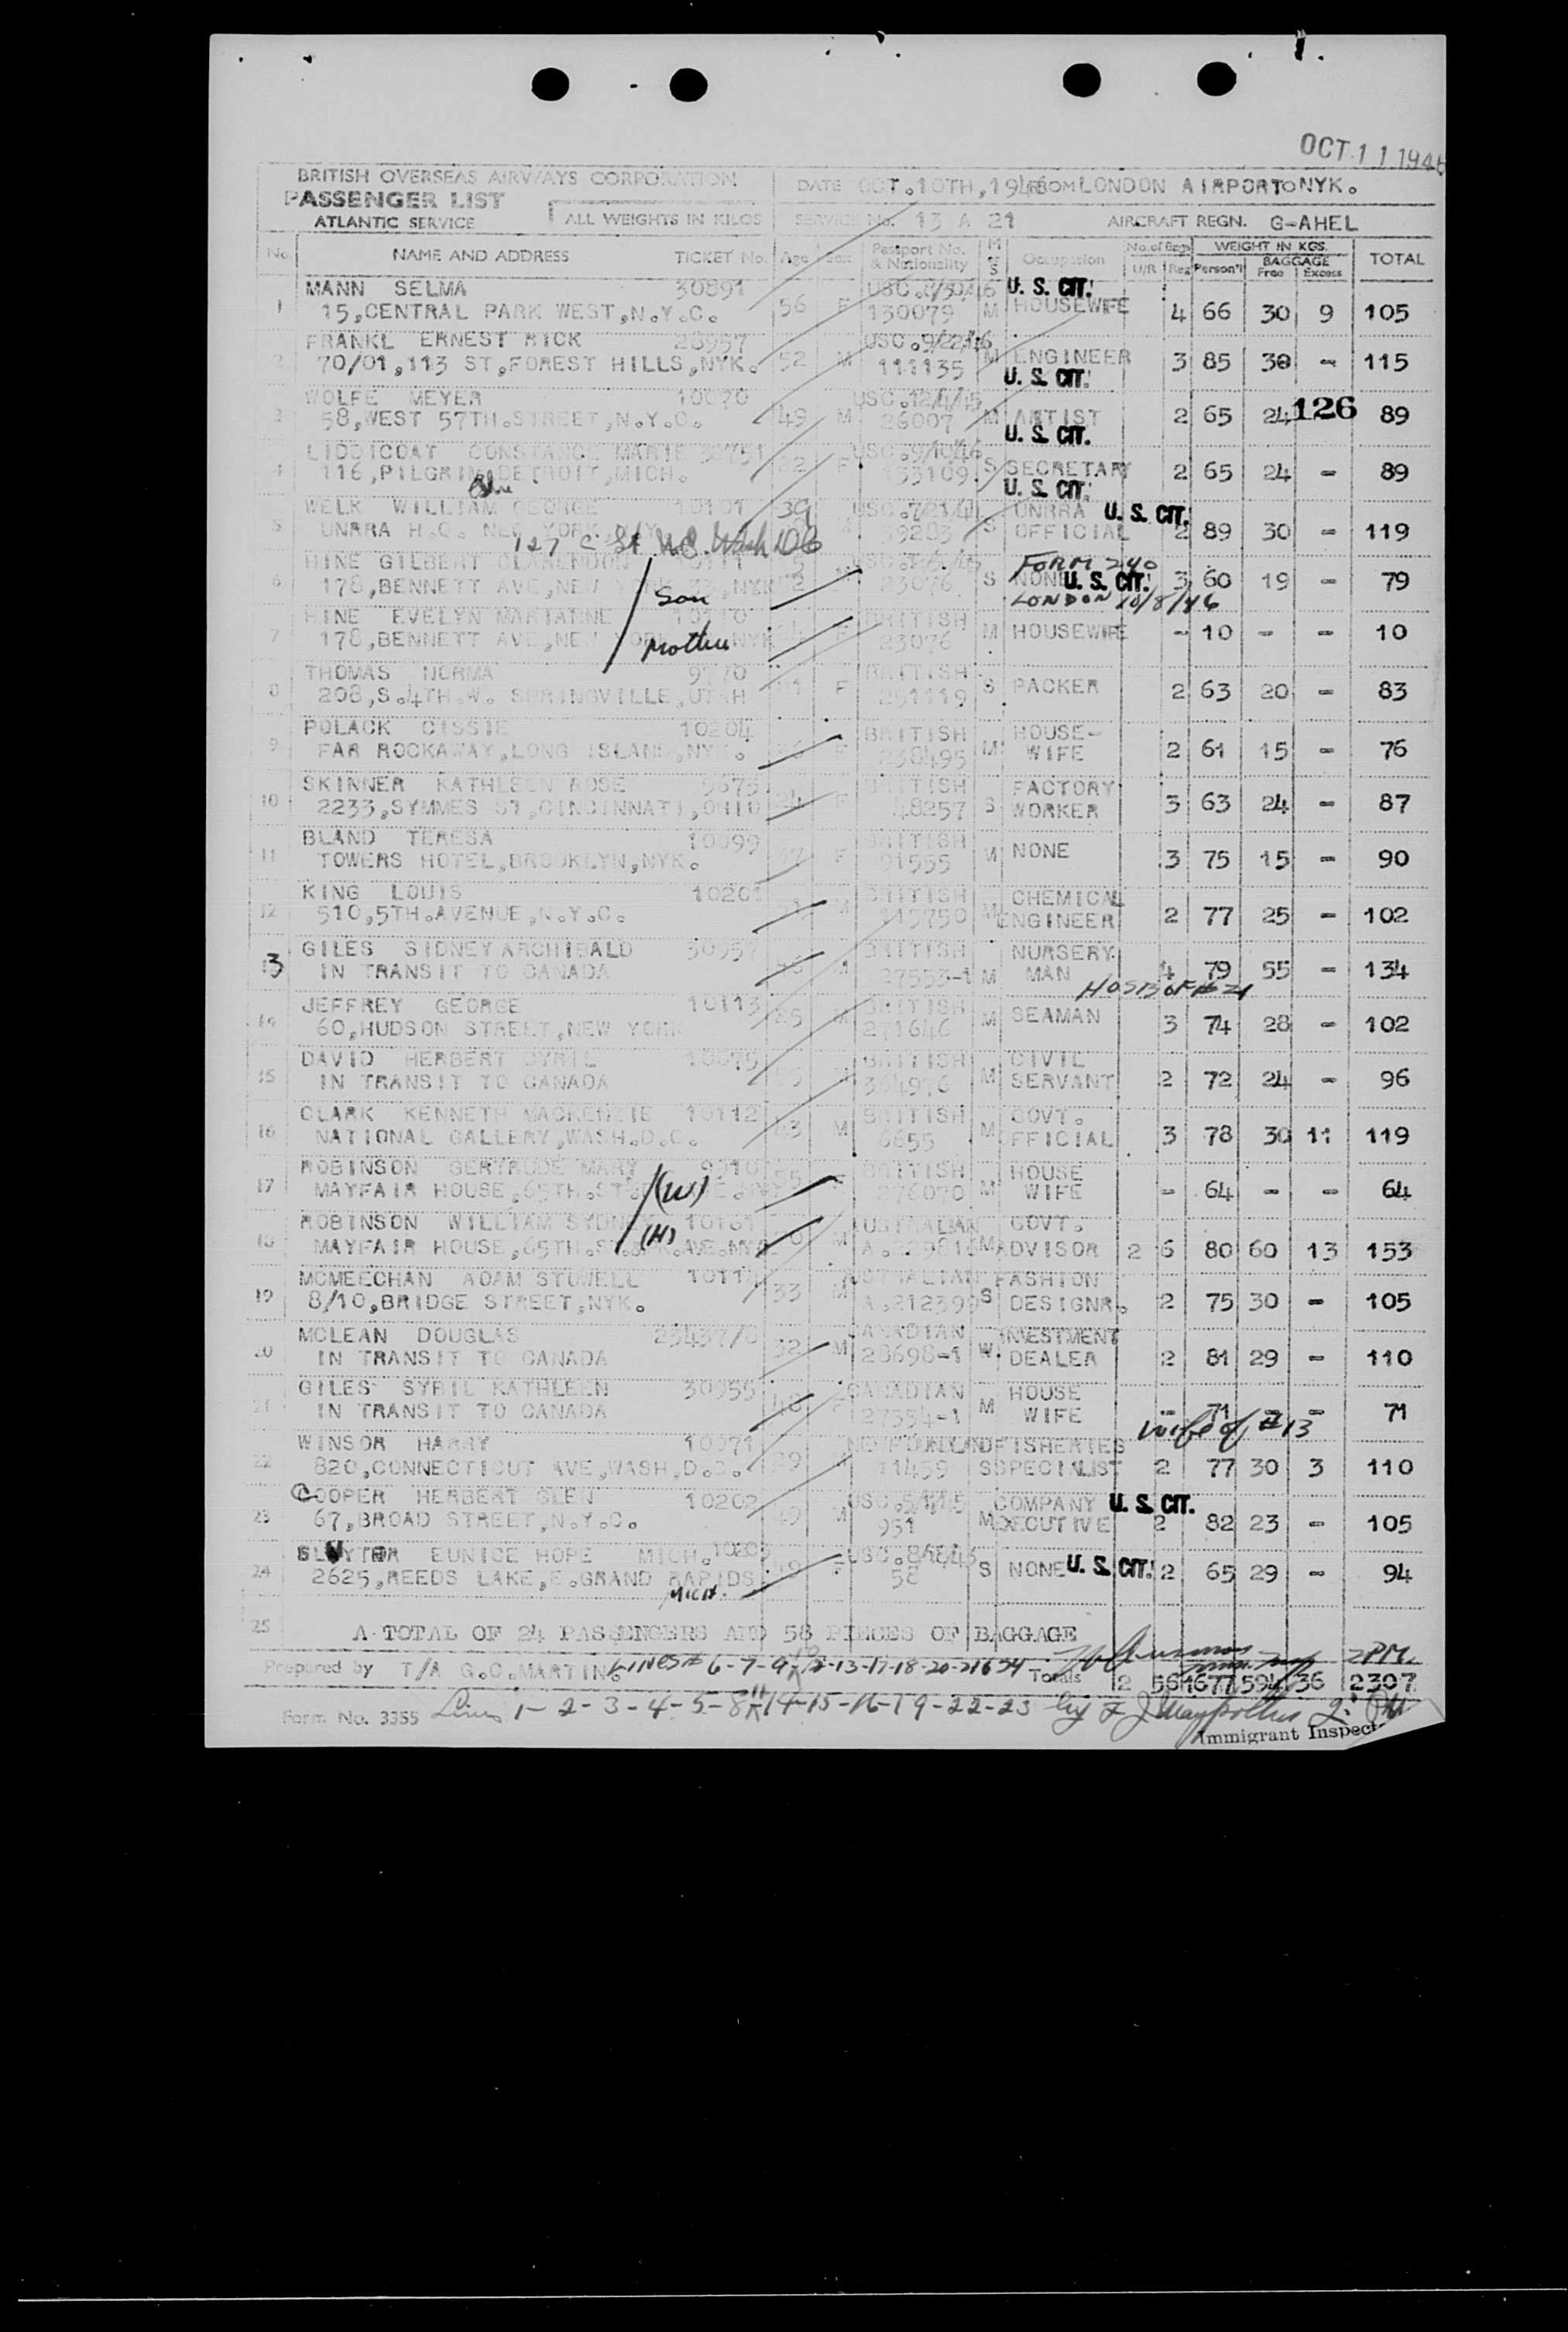 OCT 11 1946
BRITISH OVERSEAS AIRWAYS CORPORATION
PASSENGER LIST
ATLANTIC SERVICE
ALL WEIGHTS IN KILOS
DATE OCT.10TH,1946 FROM LONDON AIRPORT TO NYK.
SERVICE No. 13 A 21 AIRCRAFT REGN. G-AHEL
No. NAME AND ADDRESS TICKET No. Age Sex Passport No. & Nationality M or S Occupation No. of Bags U/R Reg WEIGHT IN KGS. Person'l BAGGAGE Free Excess TOTAL
MANN SELMA 30891 U. S. CIT.
1 15,CENTRAL PARK WEST,N.Y.C. 56 F 130079 M HOUSEWIFE 4 66 30 9 105
FRANKL ERNEST RICK 28957 USC.
2 70/01,113 ST,FOREST HILLS,NYK. 52 M 111135 M ENGINEER 3 85 30 - 115
U. S. CIT.
WOLFE MEYER 10070 USC.12/4/45
3 58,WEST 57TH.STREET,N.Y.C. 49 M 26007 M ARTIST 2 65 24 126 89
U. S. CIT.
LIDDICOAT CONSTANCE MARIE USC.
4 116,PILGRIM DETROIT,MICH. F 133109 S SECRETARY 2 65 24 - 89
U. S. CIT.
WELK WILLIAM GEORGE 10101 39 USC. UNRRA U. S. CIT.
5 UNRRA H.Q. NEW YORK M 59283 S OFFICIAL 2 89 30 - 119
127 C St. Wash DC
HINE GILBERT CLARENDON 10111 FORM 240
6 178,BENNETT AVE,NEW YORK NYK 23076 S NONE U. S. CIT. 3 60 19 - 79
Son LONDON 10/8/46
HINE EVELYN MARIANNE 10110 BRITISH
7 178,BENNETT AVE,NEW YORK NYK F 23076 M HOUSEWIFE - 10 - - 10
Mother
THOMAS NORMA 9770 BRITISH
8 208,S.4TH.W. SPRINGVILLE,UTAH F 251119 S PACKER 2 63 20 - 83
POLACK CISSIE 10204 BRITISH HOUSE-
9 FAR ROCKAWAY,LONG ISLAND,NYK. F 238495 M WIFE 2 61 15 - 76
SKINNER KATHLEEN ROSE 9673 BRITISH FACTORY
10 2233,SYMMES ST,CINCINNATI,OHIO 24 F 48257 S WORKER 3 63 24 - 87
BLAND TERESA 10099 BRITISH
11 TOWERS HOTEL,BROOKLYN,NYK. F 91555 M NONE 3 75 15 - 90
KING LOUIS 10201 BRITISH CHEMICAL
12 510,5TH.AVENUE,N.Y.C. M 115750 M ENGINEER 2 77 25 - 102
GILES SIDNEY ARCHIBALD 30957 BRITISH NURSERY
13 IN TRANSIT TO CANADA M 27553-1 M MAN 4 79 55 - 134
HUSB OF # 21
JEFFREY GEORGE 10113 BRITISH
14 60,HUDSON STREET,NEW YORK M 271646 M SEAMAN 3 74 28 - 102
DAVID HERBERT CYRIL 10075 BRITISH CIVIL
15 IN TRANSIT TO CANADA M SERVANT 2 72 24 - 96
CLARK KENNETH MACKENZIE 10112 BRITISH GOVT.
16 NATIONAL GALLERY,WASH.D.C. 43 M 6655 M OFFICIAL 3 78 30 11 119
ROBINSON GERTRUDE MARY BRITISH HOUSE
17 MAYFAIR HOUSE,65TH.ST. (W) 55 F 276070 M WIFE - 64 - - 64
ROBINSON WILLIAM SYDNEY 10161 AUSTRALIAN GOVT.
18 MAYFAIR HOUSE,65TH.ST. (H) AVE.NYK M M ADVISOR 2 6 80 60 13 153
MCMEECHAN ADAM STOWELL AUSTRALIAN FASHION
19 8/10,BRIDGE STREET,NYK. 33 M A.212399 S DESIGNR. 2 75 30 - 105
MCLEAN DOUGLAS CANADIAN INVESTMENT
20 IN TRANSIT TO CANADA 32 M 28698-1 W DEALER 2 81 29 - 110
GILES SYRIL KATHLEEN 30955 CANADIAN HOUSE
21 IN TRANSIT TO CANADA F 27554-1 M WIFE - 71 - - 71
Wife of #13
WINSOR HARRY 10071 FISHERIES
22 820,CONNECTICUT AVE,WASH,D.C. 11459 S SPECIALIST 2 77 30 3 110
COOPER HERBERT GLEN 10202 USC. COMPANY U. S. CIT.
23 67,BROAD STREET,N.Y.C. 49 M 951 M EXECUTIVE 2 82 23 - 105
EUNICE HOPE MICH. USC.
24 2625,REEDS LAKE,E.GRAND RAPIDS 19 F 58 S NONE U. S. CIT. 2 65 29 - 94
MICH.
25 A TOTAL OF 24 PASSENGERS AND 58 PIECES OF BAGGAGE
Prepared by T/A G.C.MARTIN LINES # 6-7-9-10-12-13-17-18-20-21 & 24 2PM.
Totals 2 56 1677 594 36 2307
Form No. 3355 Lines 1-2-3-4-5-8-11-14-15-16-19-22-23 by
Immigrant Inspector